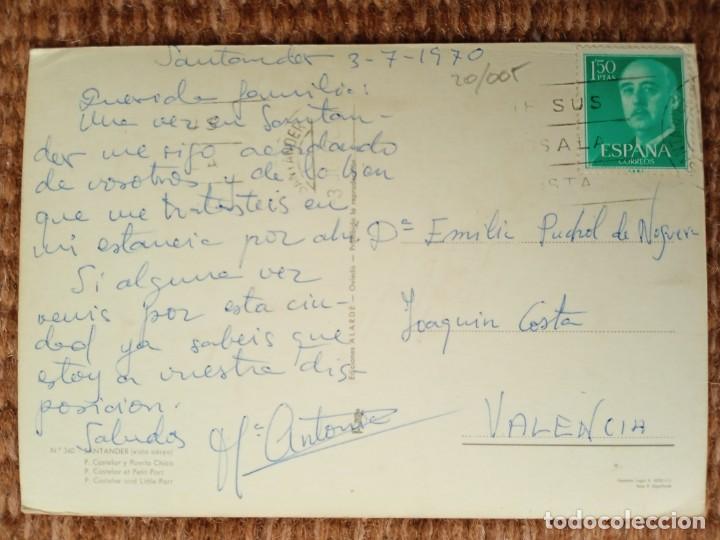 Santander 3-7-1970
20/005
Querida familia:
Una vez en Santan-
der me sigo acordando
de vosotros y de lo bien
que me tratasteis en
mi estancia por ahi
Si alguna vez
venis por esta ciu-
dad ya sabeis que
estoy a vuestra dis-
posicion.
Saludos Mª Antonia
1'50
PTAS
ESPAÑA
CORREOS
SUS
SALA
STA
Dª Emilia Puchol de Noguera
Joaquin Costa
VALENCIA
Ediciones ALARDE - Oviedo - Prohibida la reproducción
N.º 340 - SANTANDER (vista aérea)
P. Castelar y Puerto Chico
P. Castelar et Petit Port
P. Castelar and Little Port
todocoleccion.net